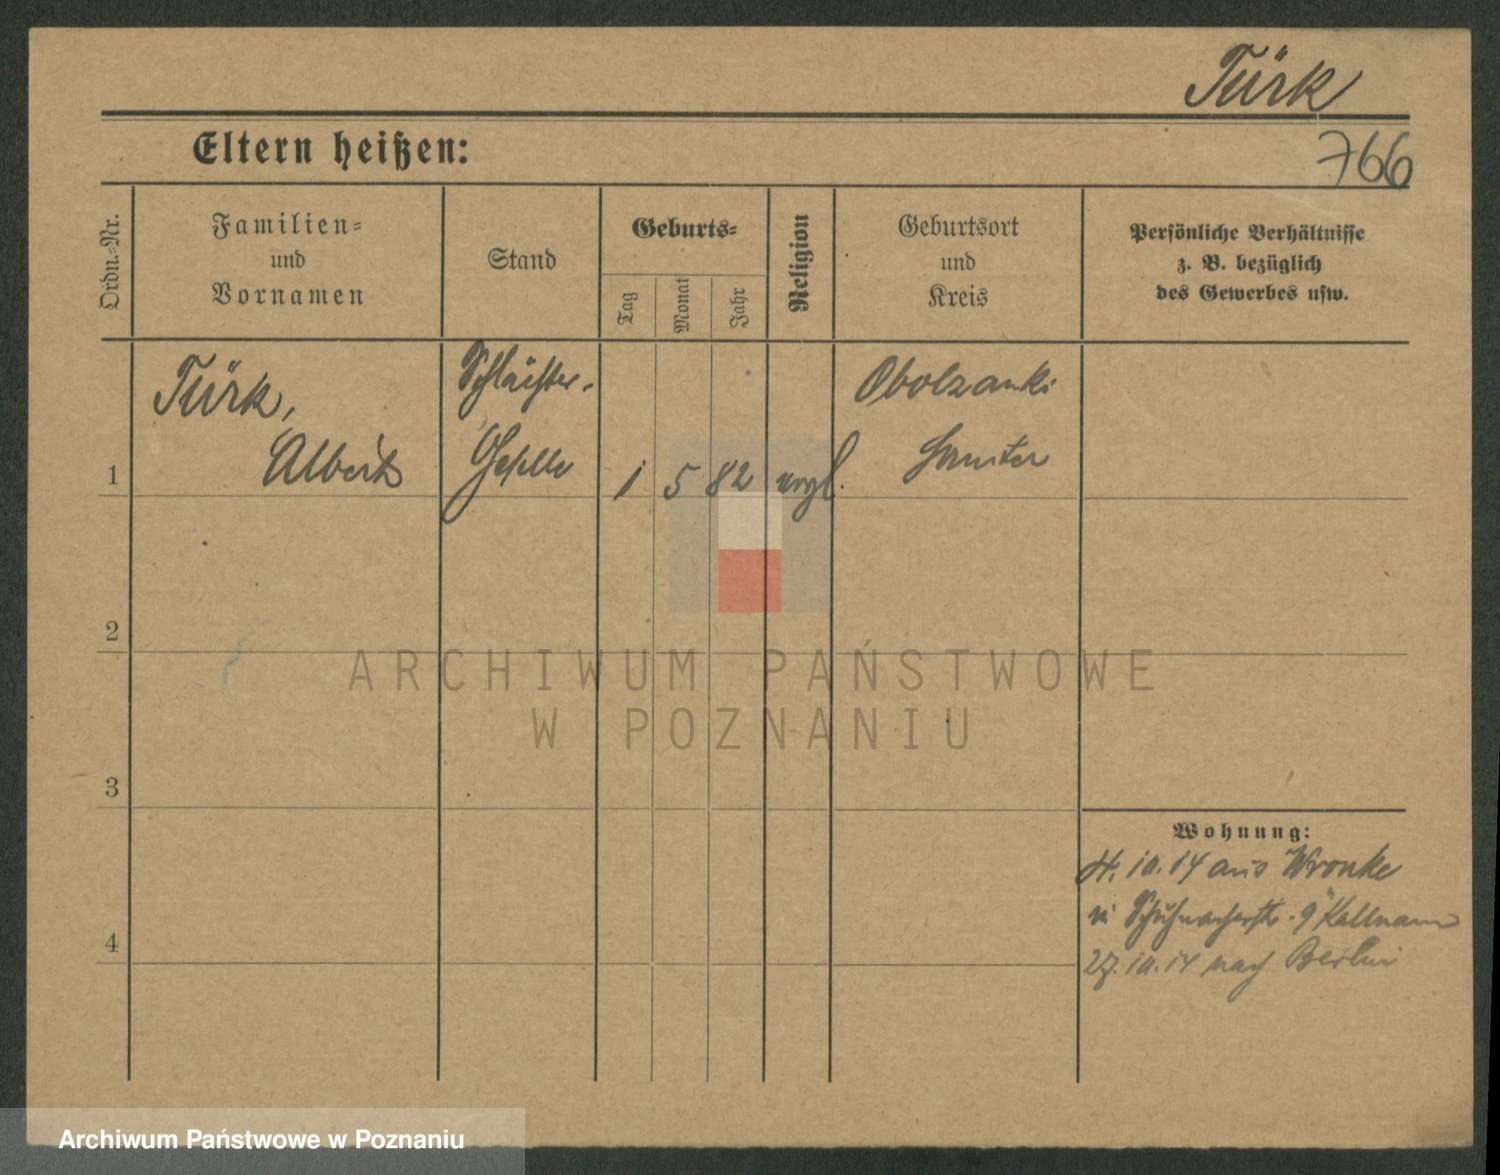 Türk
Eltern heißen:
766
Ordn.-Nr.
Familien=
und
Vornamen
Stand
Geburts=
Tag
Monat
Jahr
Religion
Geburtsort
und
Kreis
Persönliche Verhältnisse
z. B. bezüglich
des Gewerbes usw.
1
Türk,
Albert
Schlächter-
Geselle
1
5
82
evgl.
Obolzanki
Samter
2
3
4
Wohnung:
10.14 aus Wronke
in Schuhmacherstr. 9
27.10.14 nach Berlin
ARCHIWUM PAŃSTWOWE
W POZNANIU
Archiwum Państwowe w Poznaniu